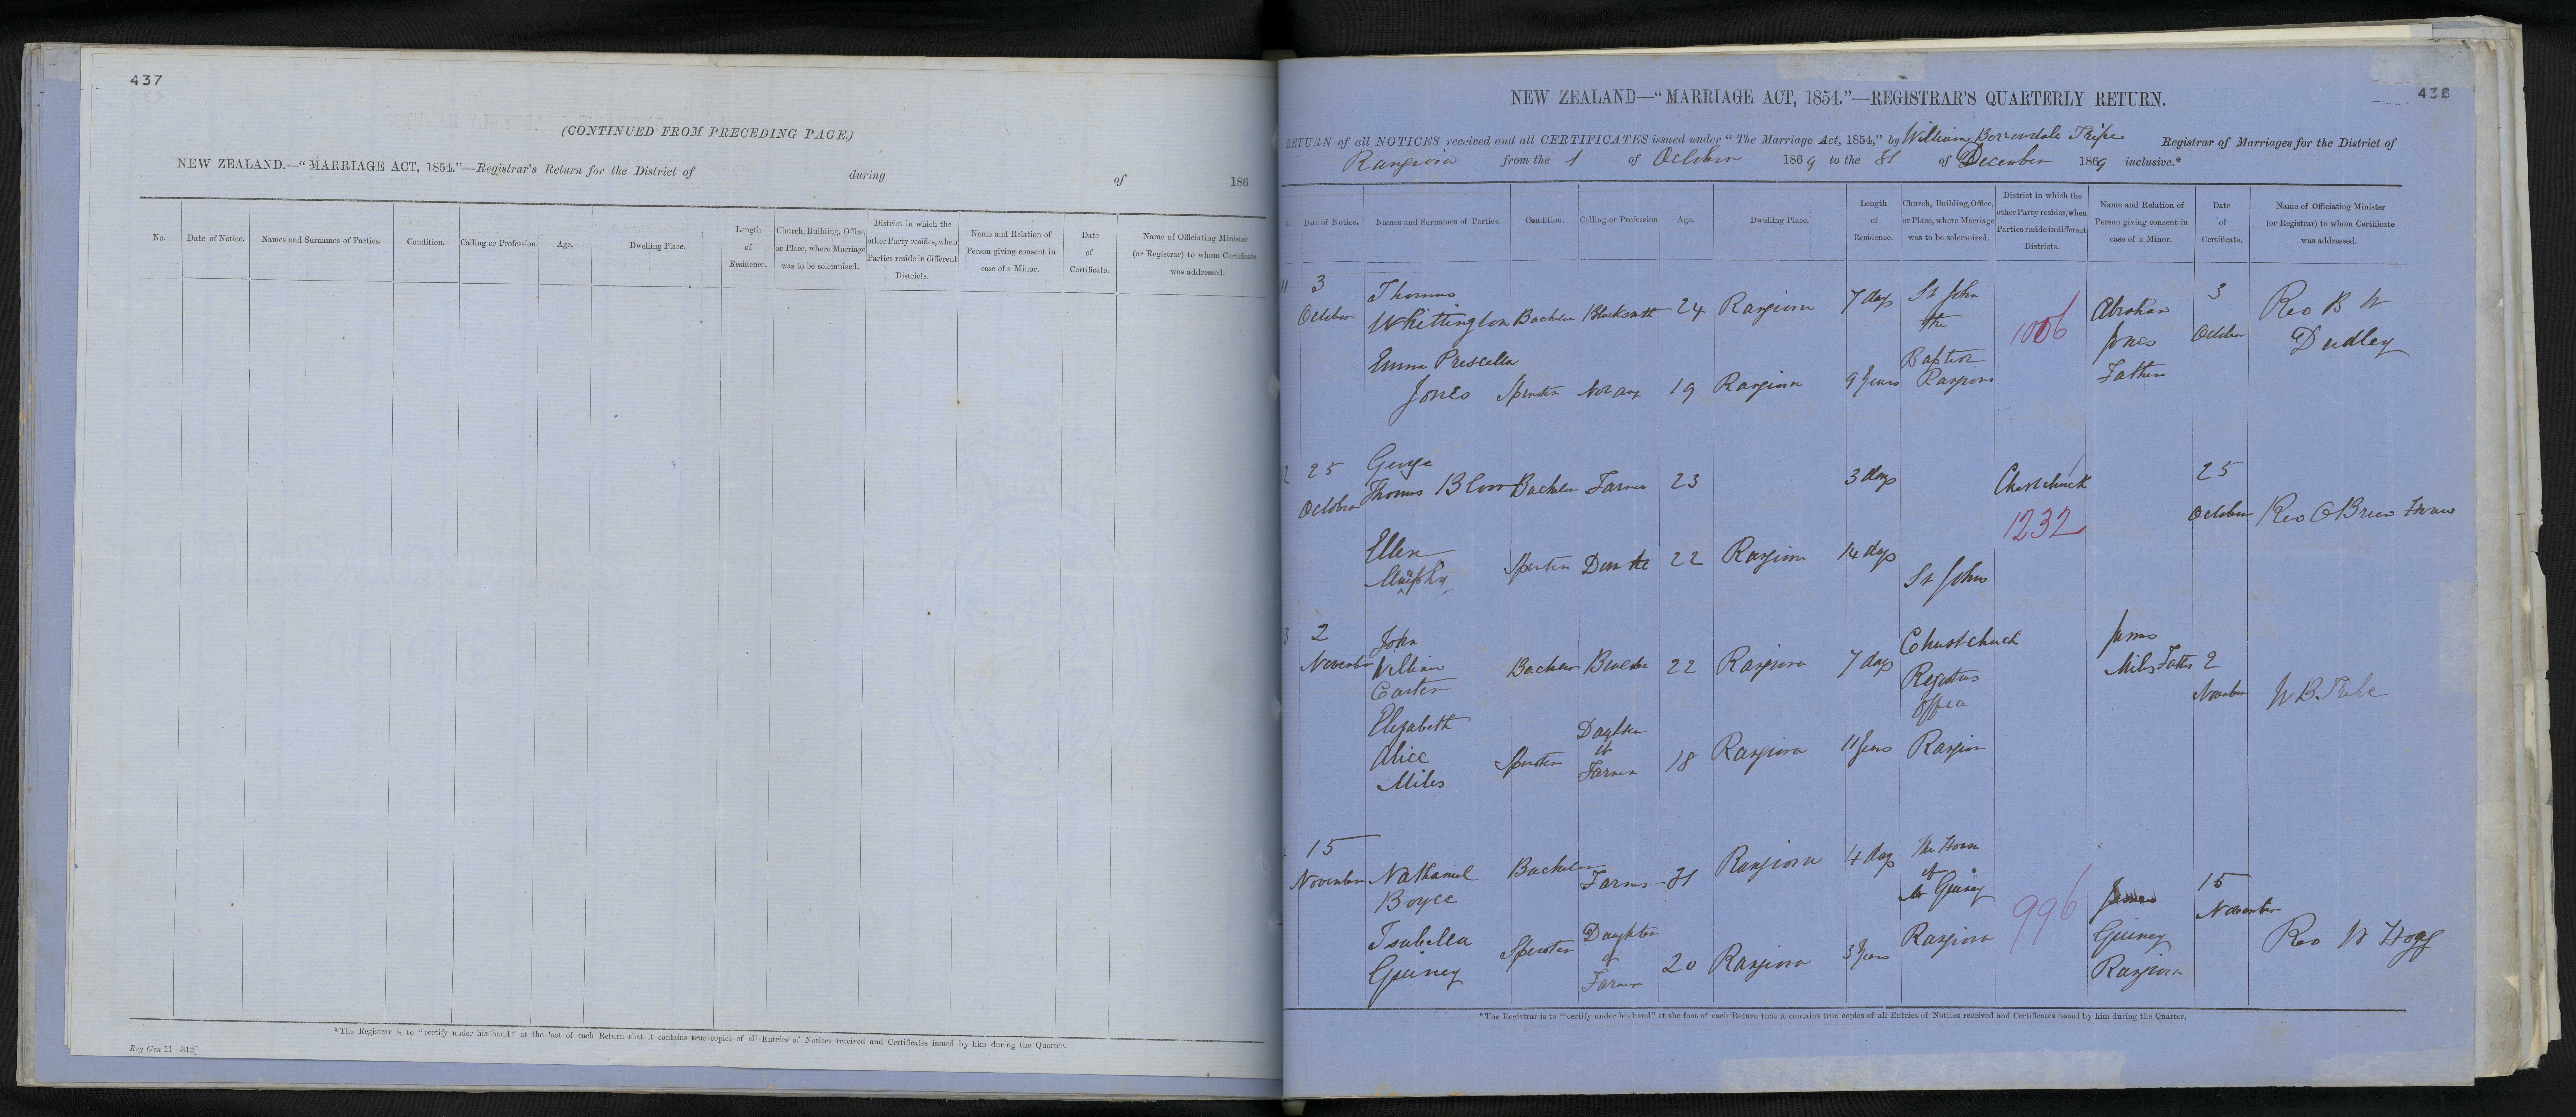 437
(CONTINUED FROM PRECEDING PAGE.)
NEW ZEALAND.—"MARRIAGE ACT, 1854."—Registrar's Return for the District of during of 186
No. Date of Notice. Names and Surnames of Parties. Condition. Calling or Profession. Age. Dwelling Place. Length of Residence. Church, Building, Office, or Place, where Marriage was to be solemnized. District in which the other Party resides, when Parties reside in different Districts. Name and Relation of Person giving consent in case of a Minor. Date of Certificate. Name of Officiating Minister (or Registrar) to whom Certificate was addressed.
*The Registrar is to "certify under his hand" at the foot of each Return that it contains true copies of all Entries of Notices received and Certificates issued by him during the Quarter.
Reg Gen 11—312]
438
NEW ZEALAND—"MARRIAGE ACT, 1854."—REGISTRAR'S QUARTERLY RETURN.
RETURN of all NOTICES received and all CERTIFICATES issued under "The Marriage Act, 1854," by William Borrowdale Tripe Registrar of Marriages for the District of
Rangiora from the 1 of October 1869 to the 31 of December 1869 inclusive.*
Date of Notice. Names and Surnames of Parties. Condition. Calling or Profession Age. Dwelling Place. Length of Residence. Church, Building, Office, or Place, where Marriage was to be solemnized. District in which the other Party resides, when Parties reside in different Districts. Name and Relation of Person giving consent in case of a Minor. Date of Certificate. Name of Officiating Minister (or Registrar) to whom Certificate was addressed.
11 3 Thomas St John 3 Rev B W
October Whittington Bachelor Blacksmith 24 Rangiora 7 days the 1006 Abraham October Dudley
Emma Prescella Baptist Jones
Jones Spinster Not any 19 Rangiora 9 years Rangiora Father
2 25 George 25
October Thomas Bachelor Farmer 23 3 days Christchurch October Rev
1232
Ellen Spinster 22 Rangiora 14 days
Murphy St Johns
3 2 John Christchurch James
November William Bachelor 22 Rangiora 7 days Registrars Miles Father 2
Carter Office November W B Tripe
Elizabeth Daughter
Alice Spinster of 18 Rangiora 11 years Rangiora
Miles Farmer
15 Bachelor Rangiora 4 days The House 15
November Nathaniel Farmer 31 of James November
Boyce Mr Guiney 996 Guiney
Isabella Spinster Daughter Rangiora Rangiora Rev W Hogg
Guiney of 20 Rangiora 3 years
Farmer
*The Registrar is to "certify under his hand" at the foot of each Return that it contains true copies of all Entries of Notices received and Certificates issued by him during the Quarter.